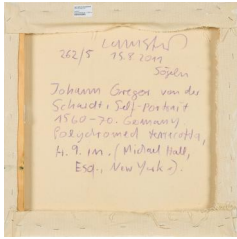 262/5 15.8.2011
Sögeln
Johann Gregor von der
Schardt, Self-Portrait
1560-70. Germany
Polychromed terracotta,
4.9. in. (Michael Hall,
Esq., New York).